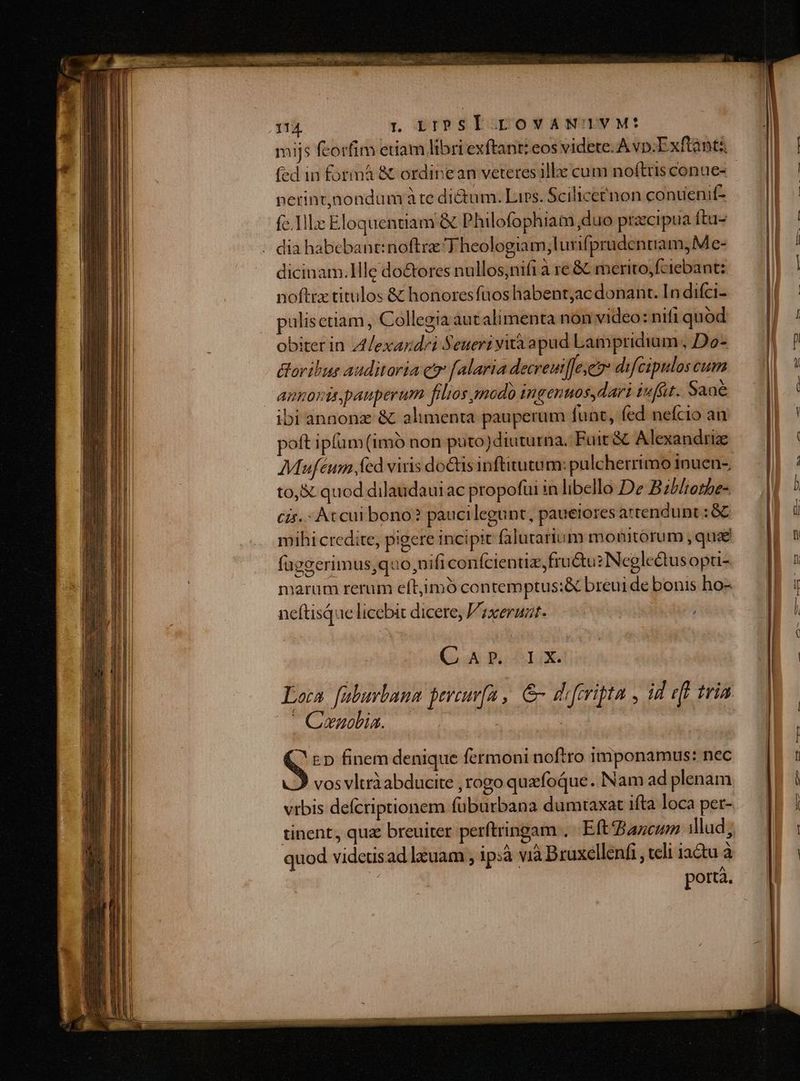 114 I. LIPSI LOVANIVM:
mijs ſeorſim etiam libri exſtant: eos videte. A vp. Exſtant;
ſed in formâ & ordine an veteres illæ cum noſtris conue-
nerint, nondum à te dictum. Lips. Scilicet non conueniſ-
ſe. Illæ Eloquentiam & Philoſophiam, duo præcipua ſtu-
dia habebant: noſtræ Theologiam, Iuriſprudentiam, Me-
dicinam. Ille doctores nullos, niſi à re & merito, ſciebant:
noſtræ titulos & honores ſuos habent, ac donant. In diſci-
pulis etiam, Collegia aut alimenta non video: niſi quòd
obiter in Alexandri Seueri vitâ apud Lampridium, Do-
ctoribus auditoria & ſalaria decreuiſſe, & diſcipulos cum
annonis, pauperum filios, modò ingenuos, dari iuſſit. Sanè
ibi annonæ & alimenta pauperum ſunt, ſed neſcio an
poſt ipſum (imò non puto) diuturna. Fuit & Alexandriæ
Muſéum, ſed viris doctis inſtitutum: pulcherrimo inuen-
to, & quod dilaudaui ac propoſui in libello De Bibliothe-
cis. At cui bono? pauci legunt, pauciores attendunt: &
mihi credite, pigere incipit ſalutarium monitorum, quæ
ſuggerimus, quo, niſi conſcientiæ, fructu? Neglectus opti-
marum rerum eſt, imò contemptus: & breui de bonis ho-
neſtisque licebit dicere, Vixerunt.
CAP. IX.
Loca ſuburbana percurſa, & deſcripta, id eſt tria
Cœnobia.
SED finem denique ſermoni noſtro imponamus: nec
vos vltrà abducite, rogo quæſoque. Nam ad plenam
vrbis deſcriptionem ſuburbana dumtaxat iſta loca per-
tinent, quæ breuiter perſtringam. Eſt Bancum illud,
quod videtis ad læuam, ipsâ viâ Bruxellenſi, teli iactu à
portâ.